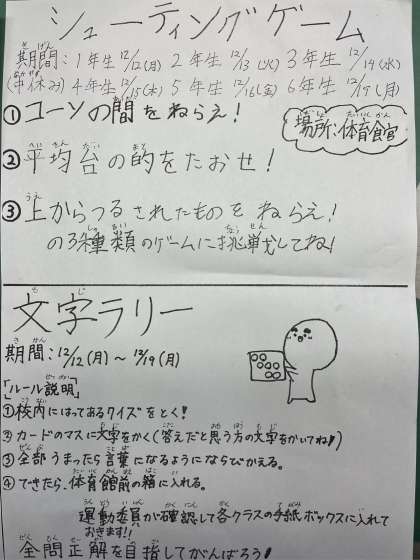 シューティングゲーム
期間：1年生12/12(月) 2年生12/13(火) 3年生12/14(水)
(中休み) 4年生12/15(木) 5年生12/16(金) 6年生12/19(月)
①コーンの間をねらえ！
場所：体育館
②平均台の的をたおせ！
③上からつるされたものをねらえ！
の3種類のゲームに挑戦してね！
文字ラリー
期間：12/12(月)～12/19(月)
「ルール説明」
①校内にはってあるクイズをとく！
②カードのマスに文字をかく(答えだと思う方の文字をかいてね！)
③全部うまったら言葉になるようにならびかえる。
④できたら、体育館前の箱に入れる。
運動委員が確認して各クラスの手紙ボックスに入れて
おきます!!
全問正解を目指してがんばろう！